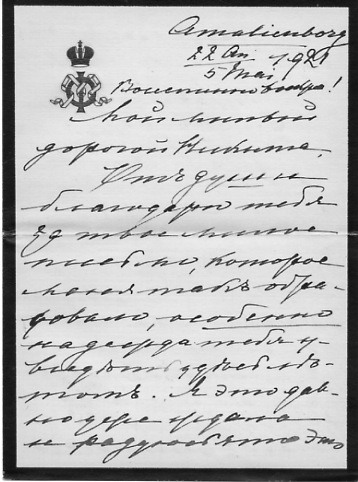 Amalienborg
22 Ап
5 Mai 1921
Воистину воскр!
Мой милый
дорогой Никита,
Отъ души
благодарю тебя
за твое милое
письмо, которое
меня такъ обра-
довало, особенно
надежда тебя у-
видѣть здѣсь лѣ-
томъ. Я это дав-
но уже ждала
и радуюсь что это